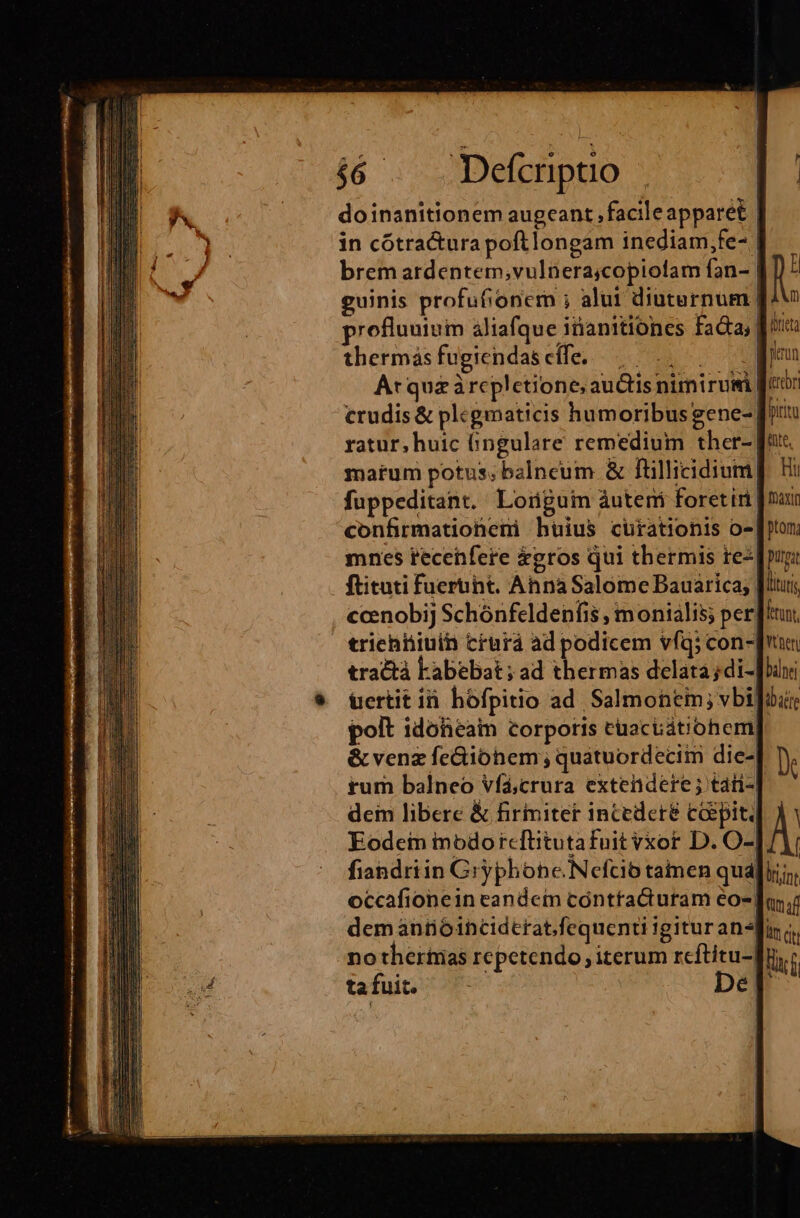 56 Deſcriptio
do inanitionem augeant, facile apparet
in cõtractura poſt longam inediam, fe-
brem ardentem, vulnera, copioſam ſan-
guinis profuſionem ; alui diuturnum
profluuium aliaſque inanitiones facta,
thermas fugiendas eſſe.
At quæ à repletione, auctis nimirum
crudis & plegmaticis humoribus gene-
ratur, huic ſingulare remedium ther-
marum potus, balneum & ſtillicidium
ſuppeditant. Longum autem foret in
confirmationem huius curationis o-
mnes recenſere ægros qui thermis re-
ſtituti fuerunt. Anna Salome Bauarica,
cœnobij Schönfeldenſis, monialis, per
triennium crura ad podicem vſq; con-
tracta habebat ; ad thermas delata, di-
uertit in hoſpitio ad Salmonem ; vbi
poſt idoneam corporis euacuationem
& venæ ſectionem, quatuordecim die-
rum balneo vſa, crura extendere ; tan-
dem libere & firmiter incedere cœpit.
Eodem modo reſtituta fuit vxor D. O-
ſiandri in Gryphone. Neſcio tamen qua
occaſione in eandem contracturam eo-
dem anno inciderat, ſequenti igitur an-
no thermas repetendo, iterum reſtitu-
ta fuit. De